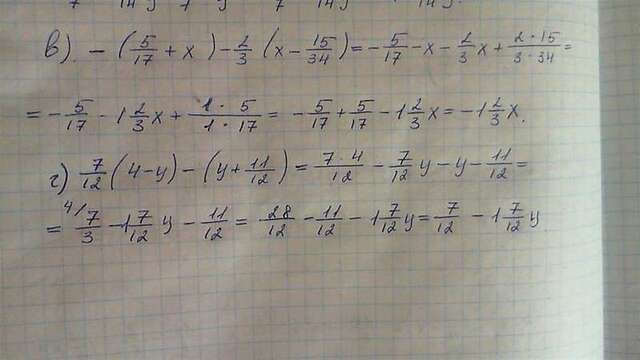 в). - (5/17 + x) - 2/3 (x - 15/34) = - 5/17 - x - 2/3 x + 2·15/3·34 =
= - 5/17 - 1 2/3 x + 1·5/1·17 = - 5/17 + 5/17 - 1 2/3 x = - 1 2/3 x.
г) 7/12 (4-y) - (y + 11/12) = 7·4/12 - 7/12 y - y - 11/12 =
= 4/ 7/3 - 1 7/12 y - 11/12 = 28/12 - 11/12 - 1 7/12 y = 7/12 - 1 7/12 y